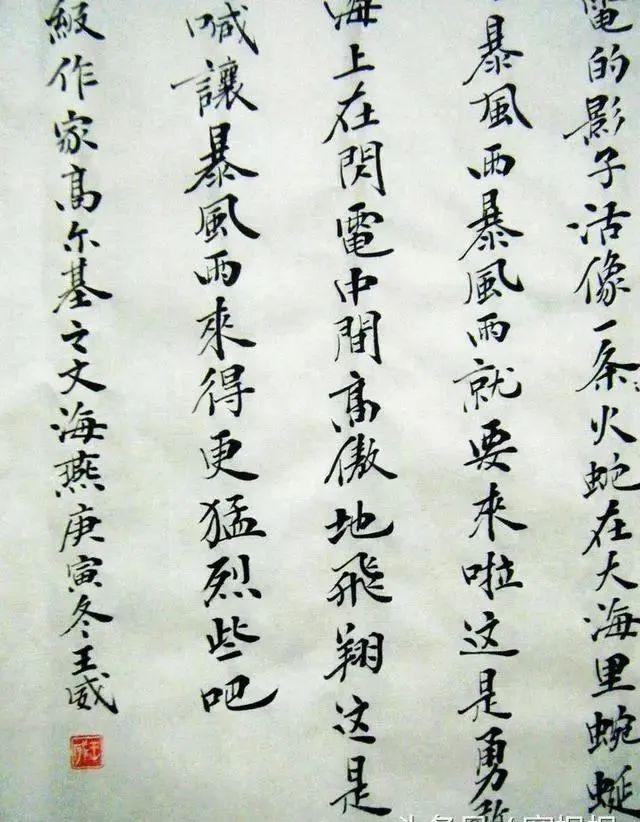 電的影子活像一条火蛇在大海里蜿蜒
暴風雨暴風雨就要来啦这是勇敢
海上在閃電中間高傲地飛翔这是
喊讓暴風雨來得更猛烈些吧
級作家高尔基之文海燕庚寅冬王威